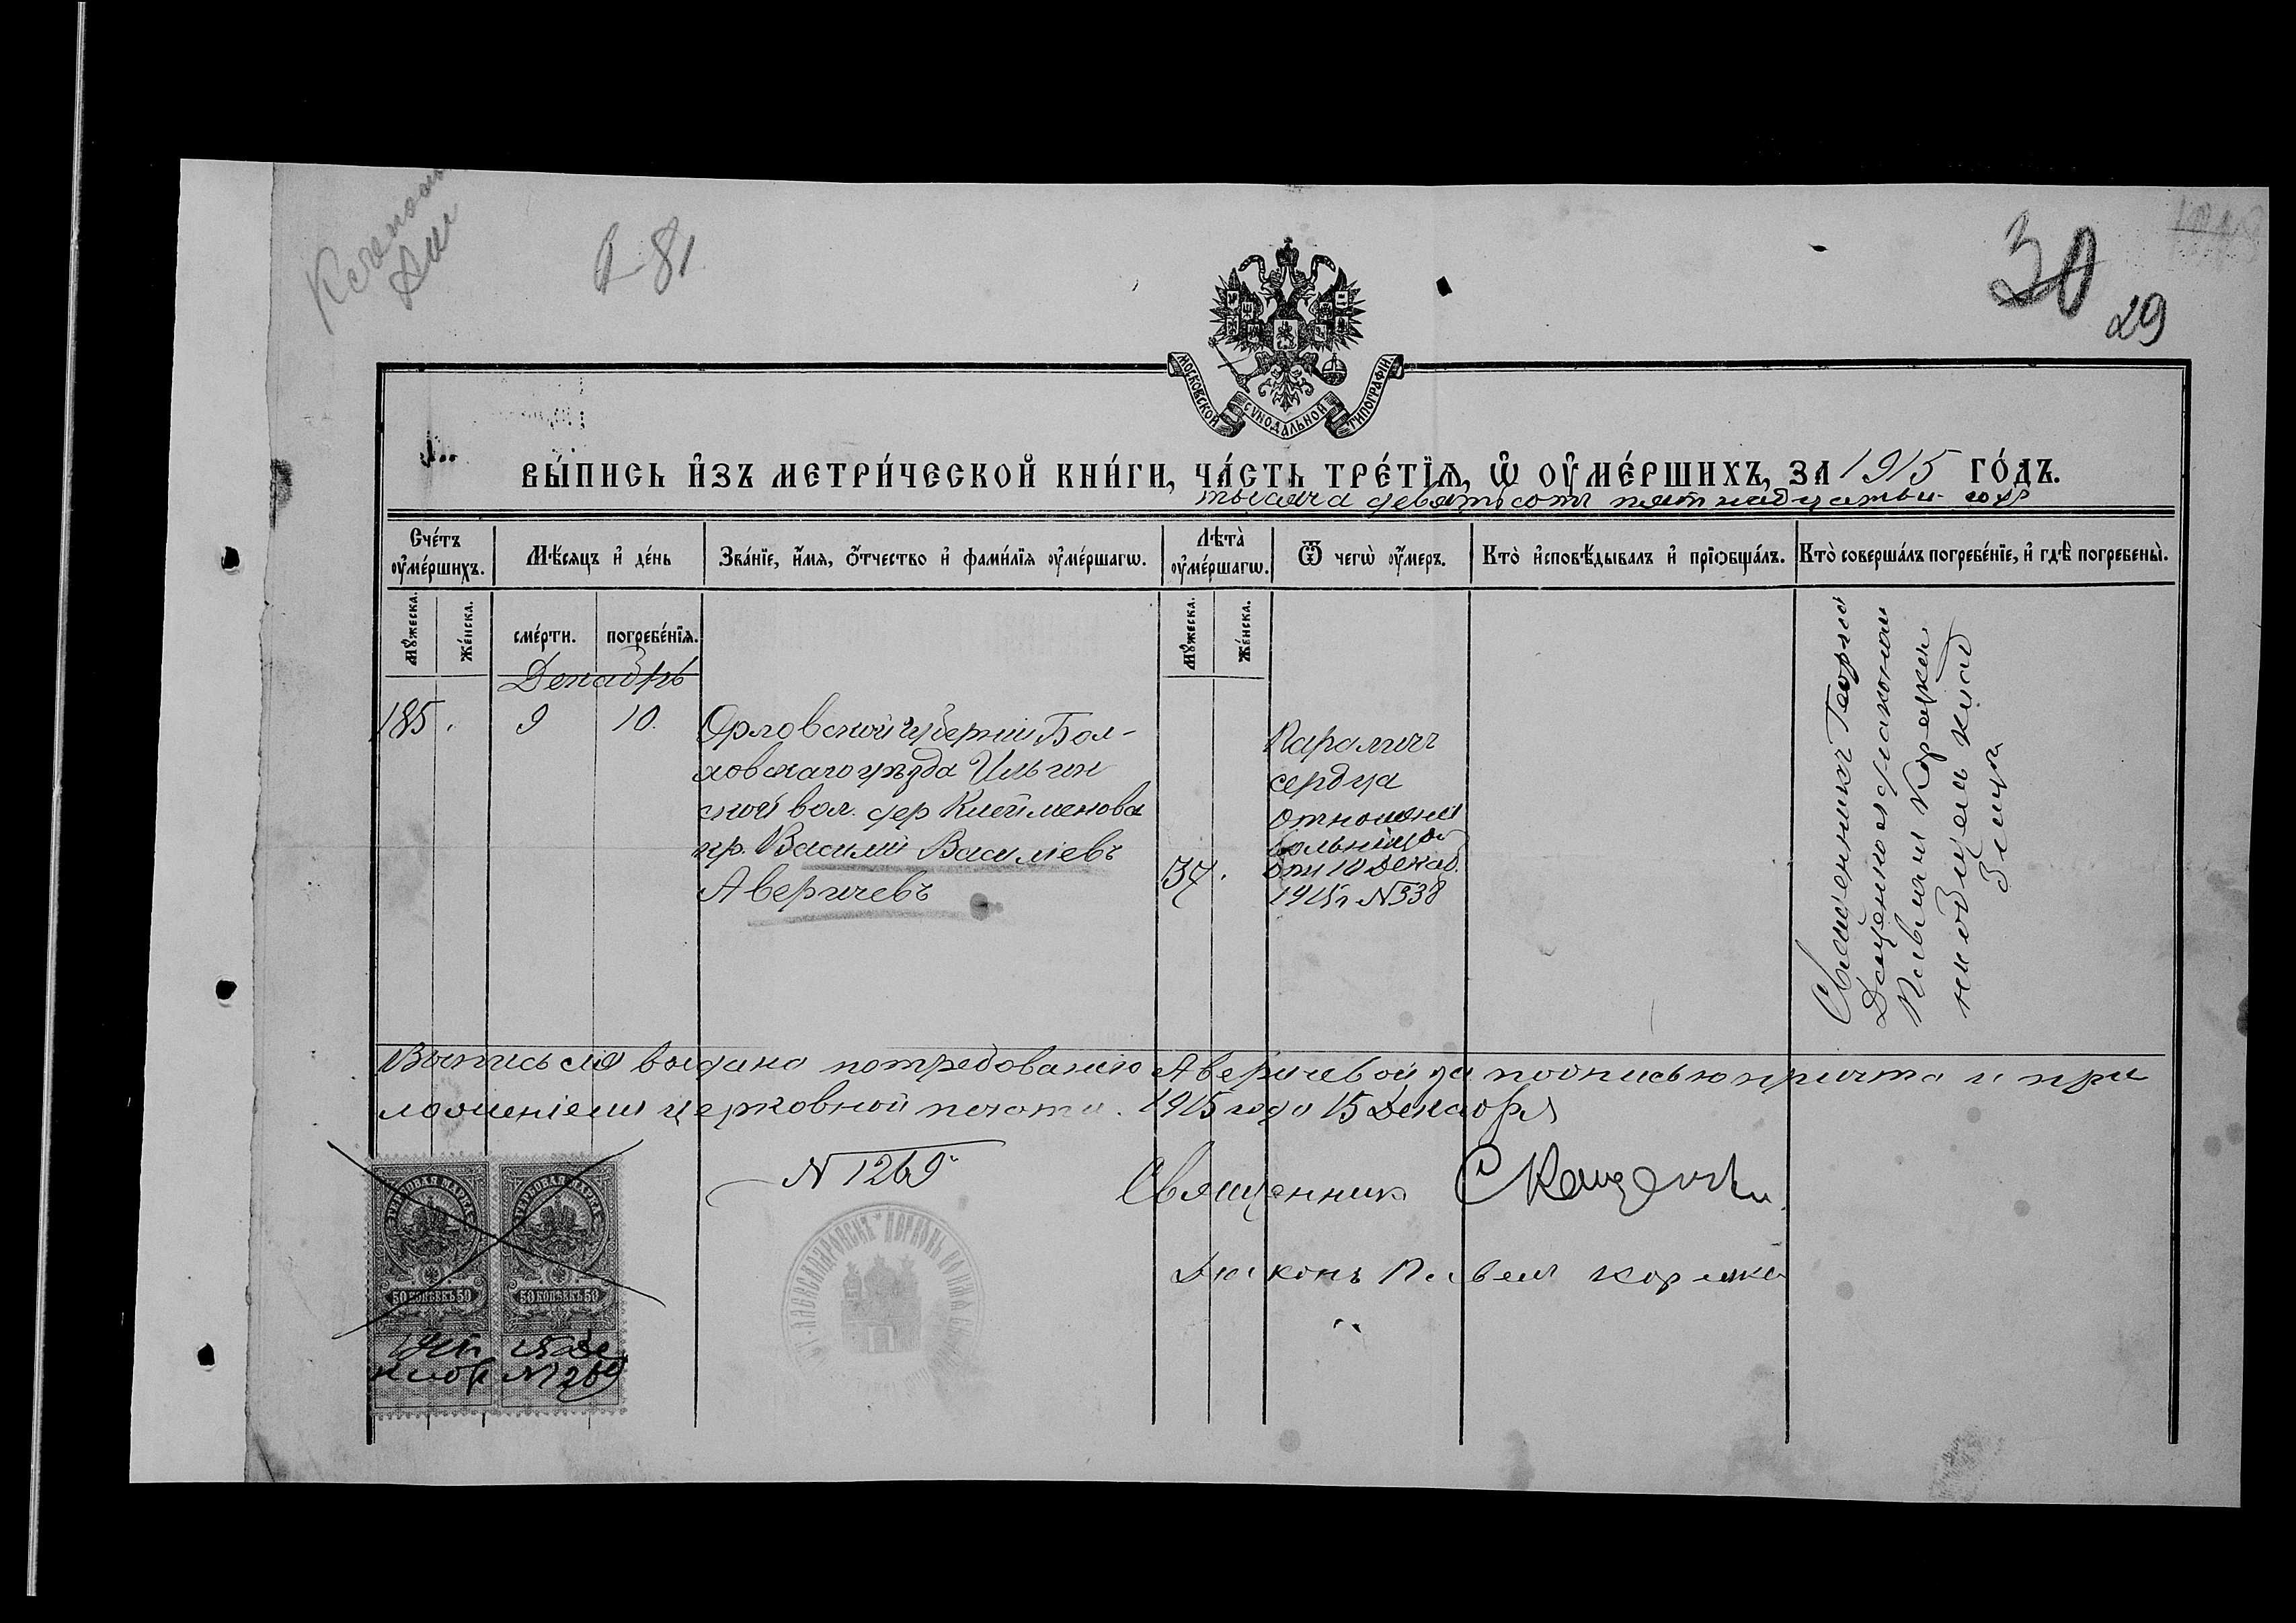 0-81
30
29
МОСКОВСКОЙ СУНОДАЛЬНОЙ ТИПОГРАФІИ
ВЫ́ПИСЬ И҆ЗЪ МЕТРИ́ЧЕСКОЙ КНИ́ГИ, ЧА́СТЬ ТРЕ́ТЇѦ, Ѡ҆ ОУ҆МЕ́РШИХЪ, ЗА 1915 ГО́ДЪ.
тысяча девятьсотъ пятнадцатый годъ
Сче́тъ оу҆ме́ршихъ.
Мѣ́сяцъ и҆ де́нь
Зва́нїе, и҆́мя, ѻ҆́тчество и҆ фами́лїя оу҆ме́ршагѡ.
Лѣта̀ оу҆ме́ршагѡ.
Ѿ чегѡ̀ оу҆́меръ.
Кто̀ и҆сповѣ́дывалъ и҆ прїѻбща́лъ.
Кто̀ соверша́лъ погребе́нїе, и҆ гдѣ̀ погребены̀.
Мꙋ́жеска.
Же́нска.
сме́рти.
погребе́нїя.
Мꙋ́жеска.
Же́нска.
Декабрь
185. 9 10.
Орловской губерніи Бол-
ховскаго уѣзда Ильин
ской вол. дер Клейменова
кр. Василій Васильевъ
Аверичевъ
37.
Параличъ
сердца
отношеніе
больницы
отъ 10 Декаб.
1915 г N 338
Священникъ Георгій
Доценко съ діакономъ
Павломъ Корежко
на общемъ клад
бищѣ
Выпись сія выдана по требованію Аверичевой за подписью причта и при
ложеніемъ церковной печати. 1915 года 15 Декабря
N 1269
Священникъ
Діаконъ Павелъ Корежко
ГЕРБОВАЯ МАРКА
50 КОПѢЕКЪ 50
ГЕРБОВАЯ МАРКА
50 КОПѢЕКЪ 50
1915 15 Де
кабр N 1269
АЛЕКСАНДРОВСКЪ ЦЕРКОВЬ